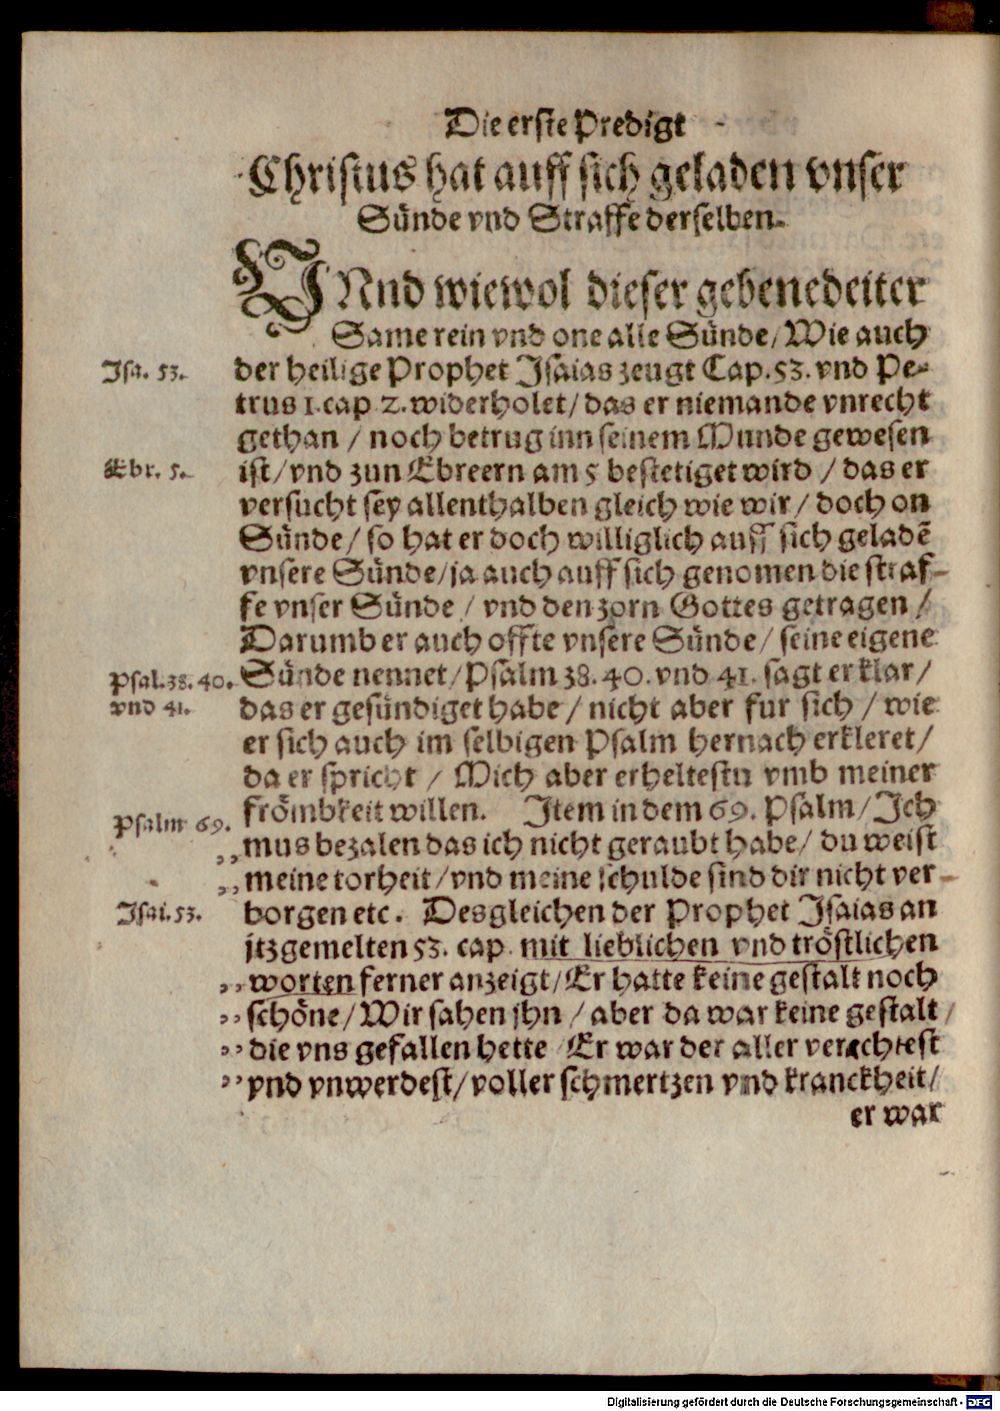 Die erste Predigt
Christus hat auff sich geladen vnser
Sünde vnd Straffe derselben.
VNnd wiewol dieser gebenedeiter
Same rein vnd one alle Sünde/ Wie auch
Isa. 53.
der heilige Prophet Isaias zeugt Cap. 53. vnd Pe-
trus 1. cap 2. widerholet/ das er niemande vnrecht
gethan / noch betrug inn seinem Munde gewesen
Ebr. 5.
ist/ vnd zun Ebreern am 5 bestetiget wird / das er
versucht sey allenthalben gleich wie wir / doch on
Sünde/ so hat er doch williglich auff sich geladẽ
vnsere Sünde/ ja auch auff sich genomen die straf-
fe vnser Sünde / vnd den zorn Gottes getragen /
Darumb er auch offte vnsere Sünde/ seine eigene
Psal. 38. 40.
vnd 41.
Sünde nennet/ Psalm 38. 40. vnd 41. sagt er klar/
das er gesündiget habe / nicht aber fur sich / wie
er sich auch im selbigen Psalm hernach erkleret/
da er spricht / Mich aber erheltestu vmb meiner
Psalm 69.
frömbkeit willen. Item in dem 69. Psalm/ Ich
,, mus bezalen das ich nicht geraubt habe/ du weist
,, meine torheit/ vnd meine schulde sind dir nicht ver-
Isai. 53.
borgen etc. Desgleichen der Prophet Isaias an
jtzgemelten 53. cap. mit lieblichen vnd tröstlichen
,, worten ferner anzeigt/ Er hatte keine gestalt noch
,, schöne/ Wir sahen jhn / aber da war keine gestalt /
,, die vns gefallen hette Er war der aller verachtest
,, vnd vnwerdest/ voller schmertzen vnd kranckheit/
er war
Digitalisierung gefördert durch die Deutsche Forschungsgemeinschaft - DFG